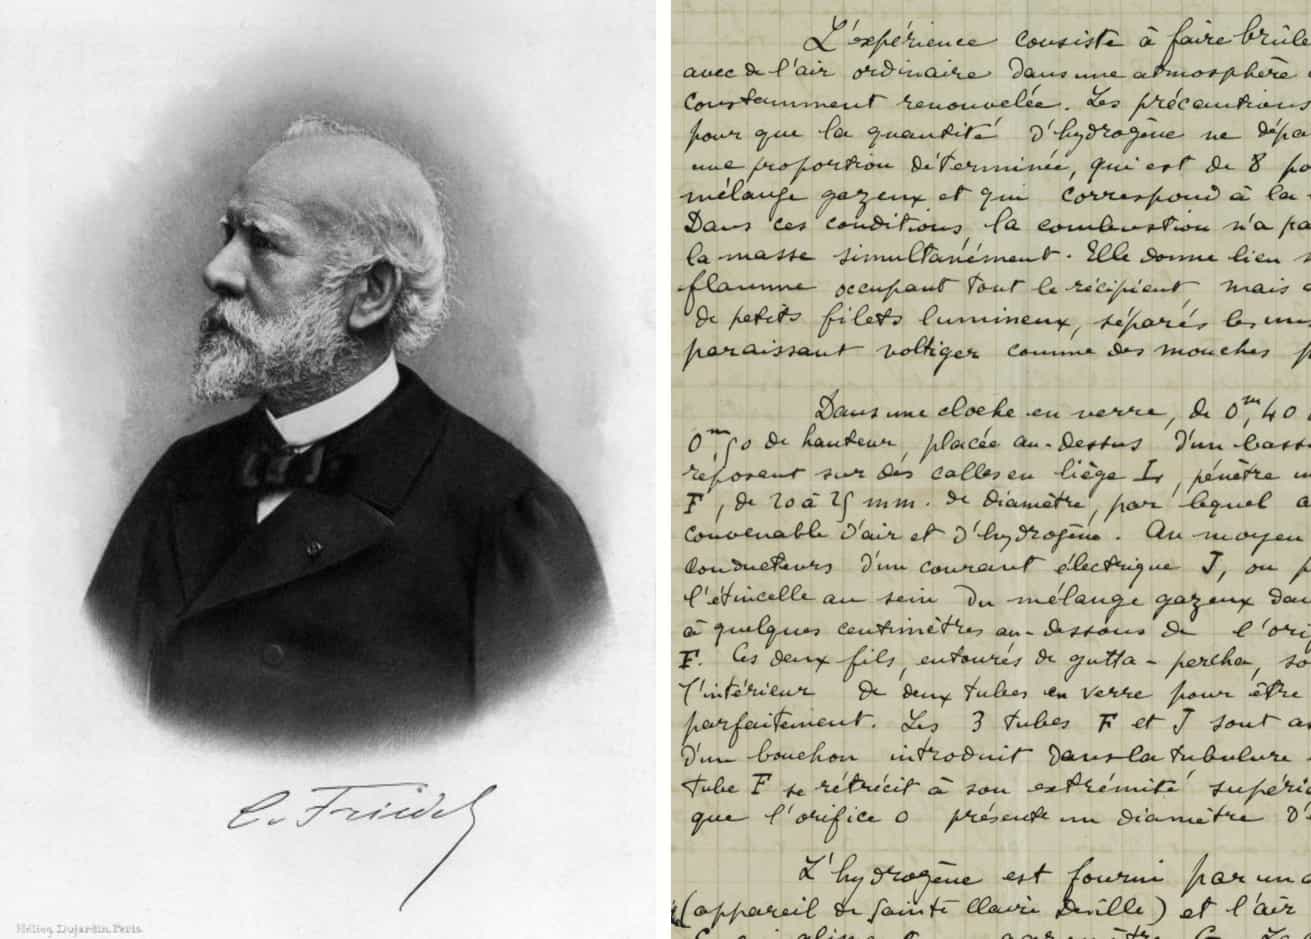 C. Friedel
Héliog. Dujardin. Paris.
L'expérience consiste à faire brûle
avec de l'air ordinaire dans une atmosphère
constamment renouvelée. Les précautions
pour que la quantité d'hydrogène ne dépa
une proportion déterminée, qui est de 8 po
mélange gazeux et qui correspond à la
Dans ces conditions, la combustion n'a pa
la masse simultanément. Elle donne lieu
flamme occupant tout le récipient mais
de petits filets lumineux, séparés les un
paraissant voltiger comme des mouches
Dans une cloche en verre, de 0m,40
0m,50 de hauteur, placée au-dessus d'un bass
reposant sur des calles en liège L, pénètre
F, de 20 à 25 mm. de diamètre, par lequel
convenable d'air et d'hydrogène. Au moyen
conducteurs d'un courant électrique J, on
l'étincelle au sein du mélange gazeux dan
à quelques centimètres au-dessous de l'ori
F. Ces deux fils, entourés de gutta-percha, so
l'intérieur de deux tubes en verre pour être
parfaitement. Les 3 tubes F et J sont
d'un bouchon introduit dans la tubulure
tube F se rétrécit à son extrémité supéri
que l'orifice o présente un diamètre d'
L'hydrogène est fourni par un
(appareil de Sainte Claire Deville) et l'air